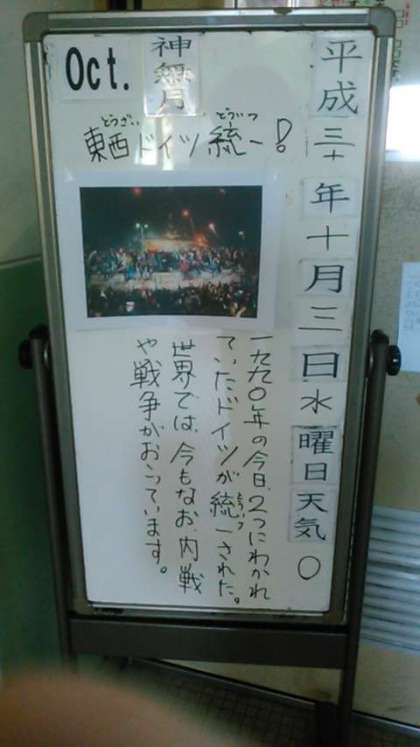 平成三十年十月三日水曜日天気〇
神無月
Oct.
東西ドイツ統一!
とうざい
とういつ
一九九〇年の今日、2つにわかれ
ていたドイツが統一された。
とういつ
世界では、今もなお、内戦
や戦争がおこっています。